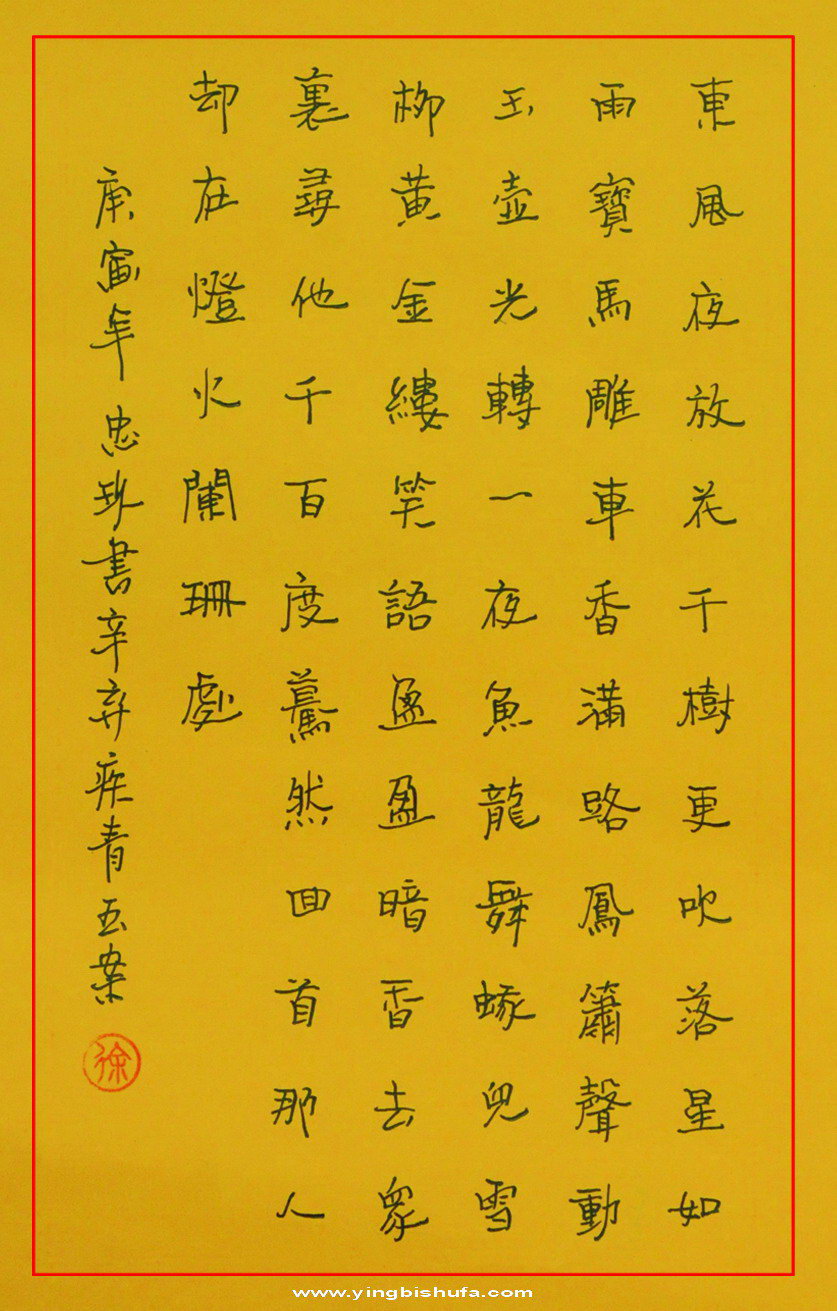 東風夜放花千樹更吹落星如
雨寶馬雕車香滿路鳳簫聲動
玉壺光轉一夜魚龍舞蛾兒雪
柳黃金縷笑語盈盈暗香去衆
裏尋他千百度驀然回首那人
却在燈火闌珊處
庚寅年忠珍書辛弃疾青玉案
徐
www.yingbishufa.com